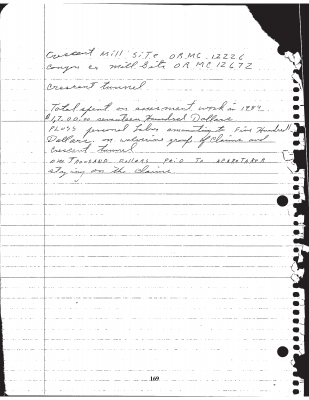 Crescent Mill SiTe ORMC 12226
Conger er mill Site ORMC 12672
Crescent Tunnel
Total spent on assessment work in 1989
$1700.00 seventeen Hundred Dollars
PLUSS personal Labor amounting to Five Hundred
Dollars, on various group of Claims and
Crescent Tunnel
one Thousand Dollars PAID TO
staying on the Claims
169